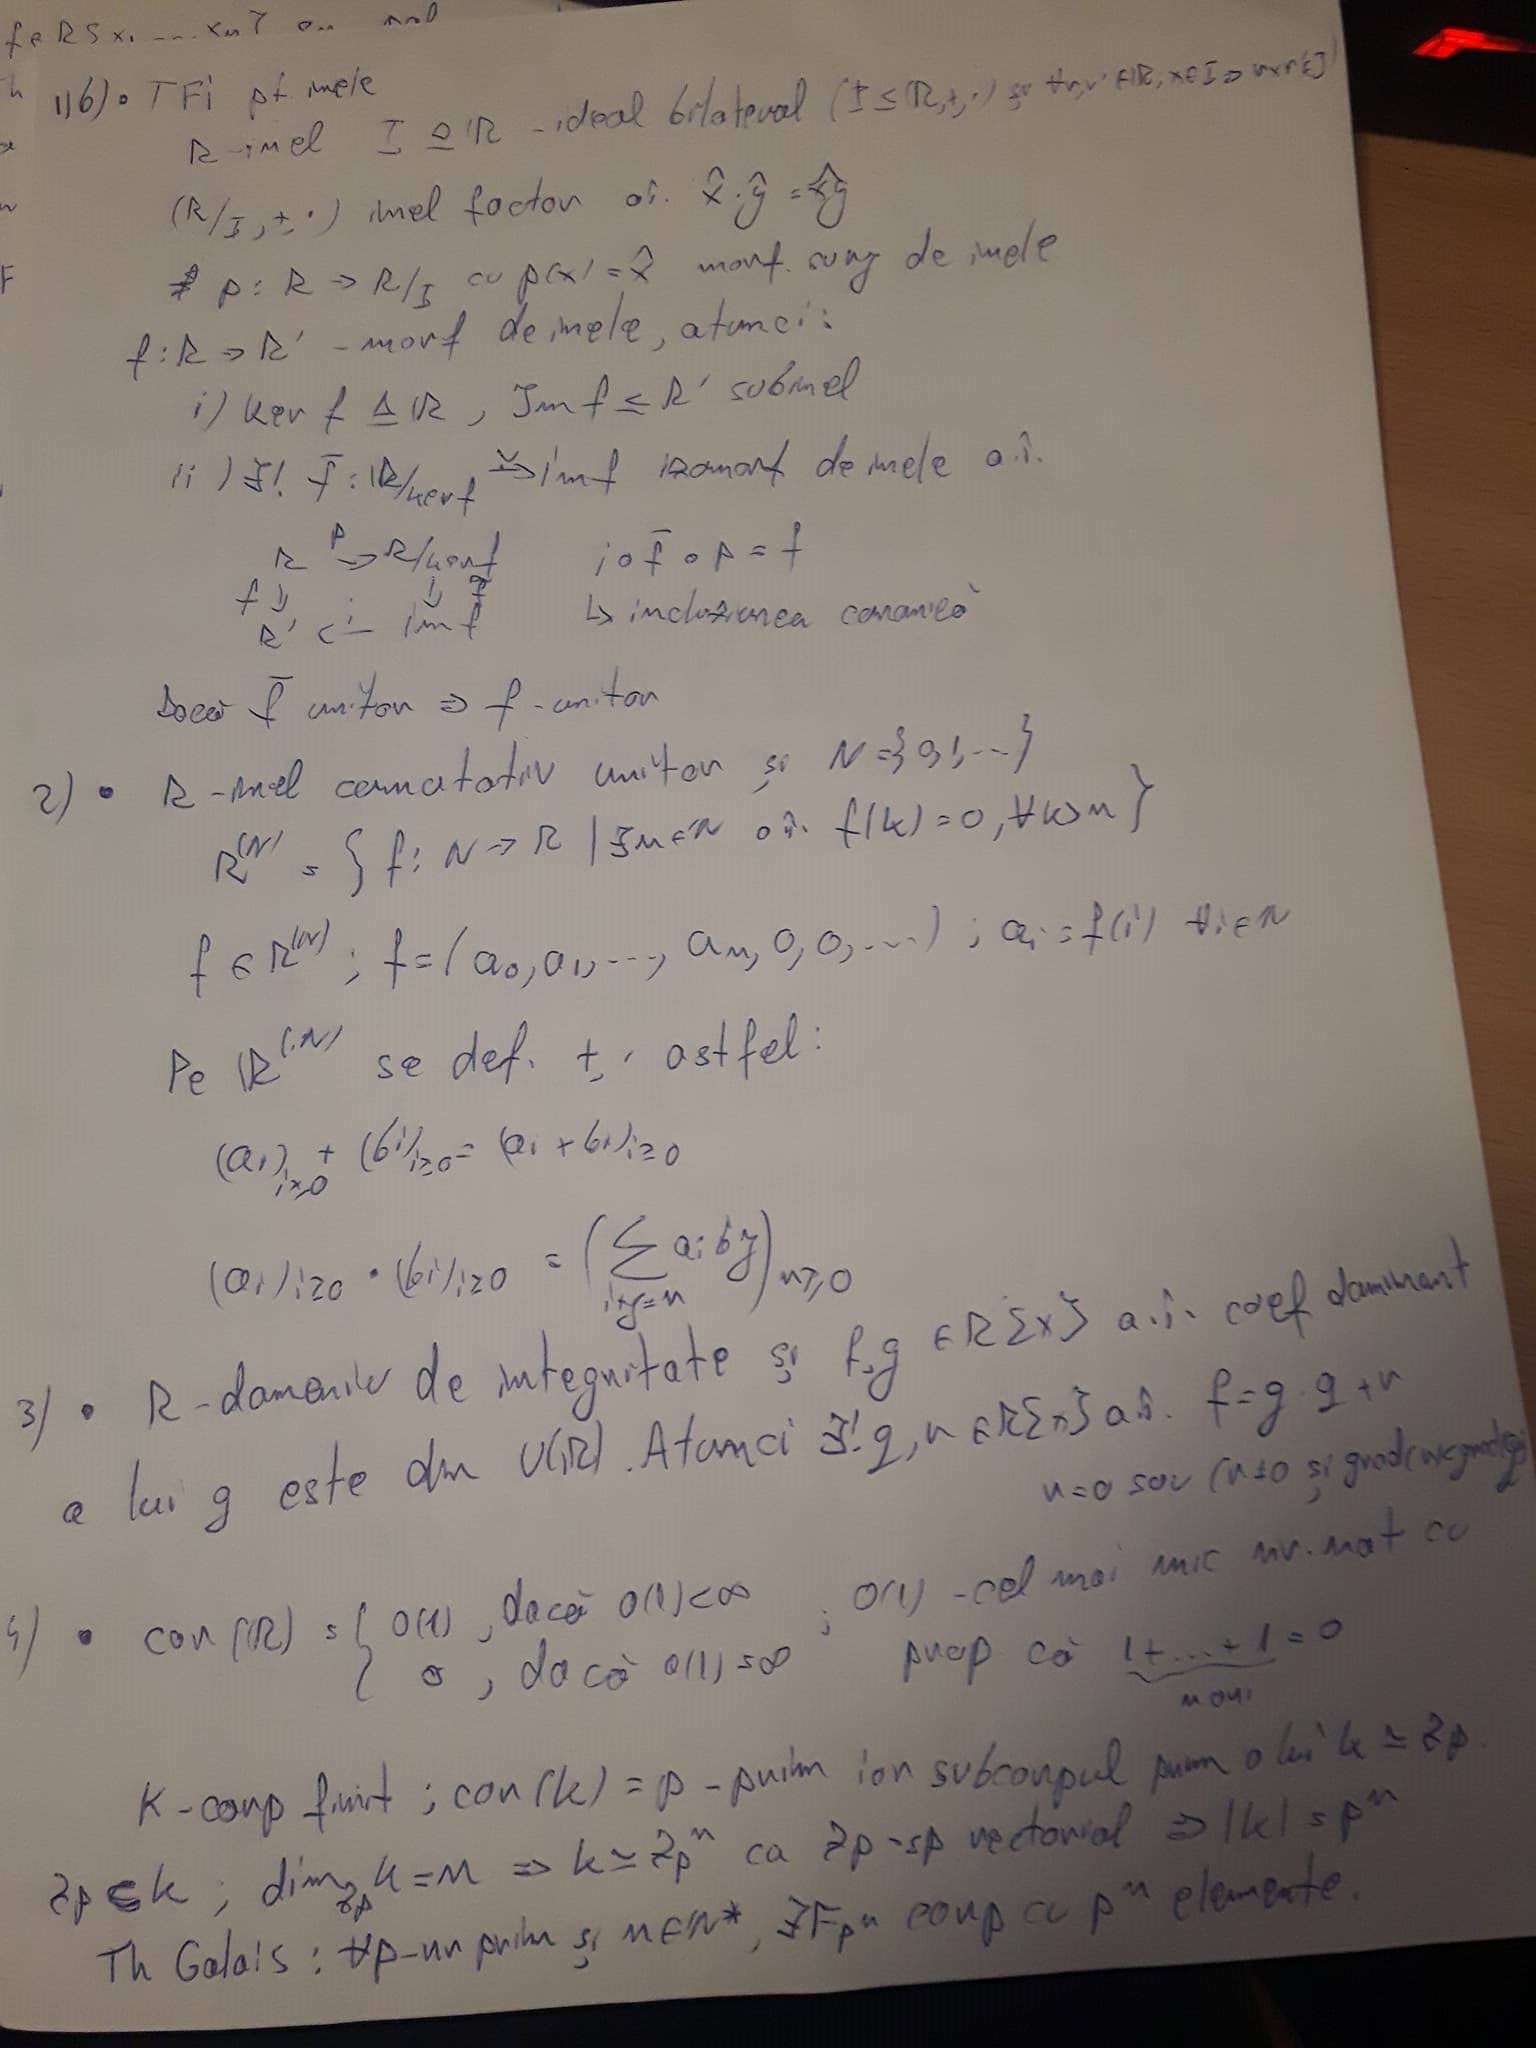 1)6) • TFi pt. inele
R-inel I ⊴ R - ideal bilateral (I ≤ (R,+,·) și ∀r,r' ∈ R, x∈I ⇒ rxr'∈I)
(R/I, +, ·) inel factor aî. x̂·ŷ = x̂y
p: R → R/I cu p(x) = x̂ morf. surj de inele
f: R → R' - morf de inele, atunci:
i) ker f ⊴ R, Im f ≤ R' subinel
ii) ∃! f̄: R/ker f → Im f izomorf de inele a.î.
R →p R/ker f i∘f̄∘p = f
f ↓ ↓ f̄ ↳ incluziunea canonică
R' ←i Im f
Dacă f̄ unitar ⇒ f - unitar
2) • R - inel comutativ unitar și N = {0,1,...}
R^(N) = {f: N → R | ∃n∈N aî. f(k) = 0, ∀k>n}
f ∈ R^(N); f = (a0, a1, ..., an, 0, 0, ...); ai = f(i) ∀i∈N
Pe R^(N) se def. +, · astfel:
(ai)i≥0 + (bi)i≥0 = (ai + bi)i≥0
(ai)i≥0 • (bi)i≥0 = (∑i+j=n ai bj)n≥0
3) • R - domeniu de integritate și f, g ∈ R[x] a.î. coef dominant
a lui g este din U(R). Atunci ∃! q, r ∈ R[x] a.î. f = g·q + r
r=0 sau (r≠0 și grad r < grad g)
4) • car(R) = { O(1), dacă O(1) < ∞ ; O(1) - cel mai mic nr. nat cu
0, dacă O(1) = ∞ prop că 1+...+1 = 0
n ori
K - corp finit; car(K) = p - prim iar subcorpul prim a lui K ≃ Zp.
Zp ⊆ K; dim Zp K = n ⇒ K ≃ Zp^n ca Zp-sp vectorial ⇒ |K| = p^n
Th Galois: ∀p - nr prim și n∈N*, ∃Fp^n corp cu p^n elemente.